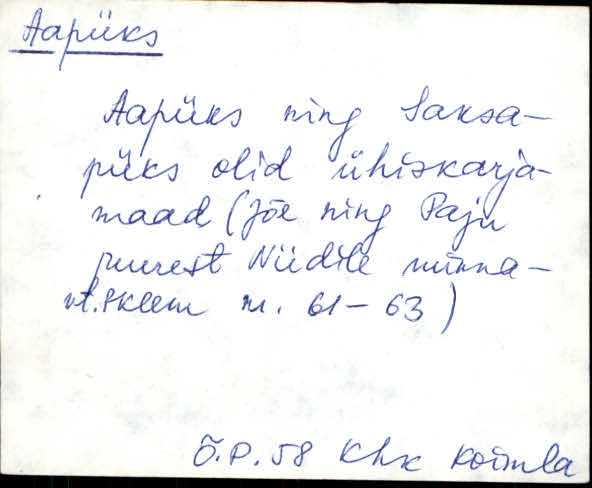 Aapüks
Aapüks ning Saksa-
püks olid ühiskarja-
maad (Jõe ning Paju
puurest Nüdile minna –
vt. skeem nr. 61–63)
Õ.P. 58 Khk Koimla